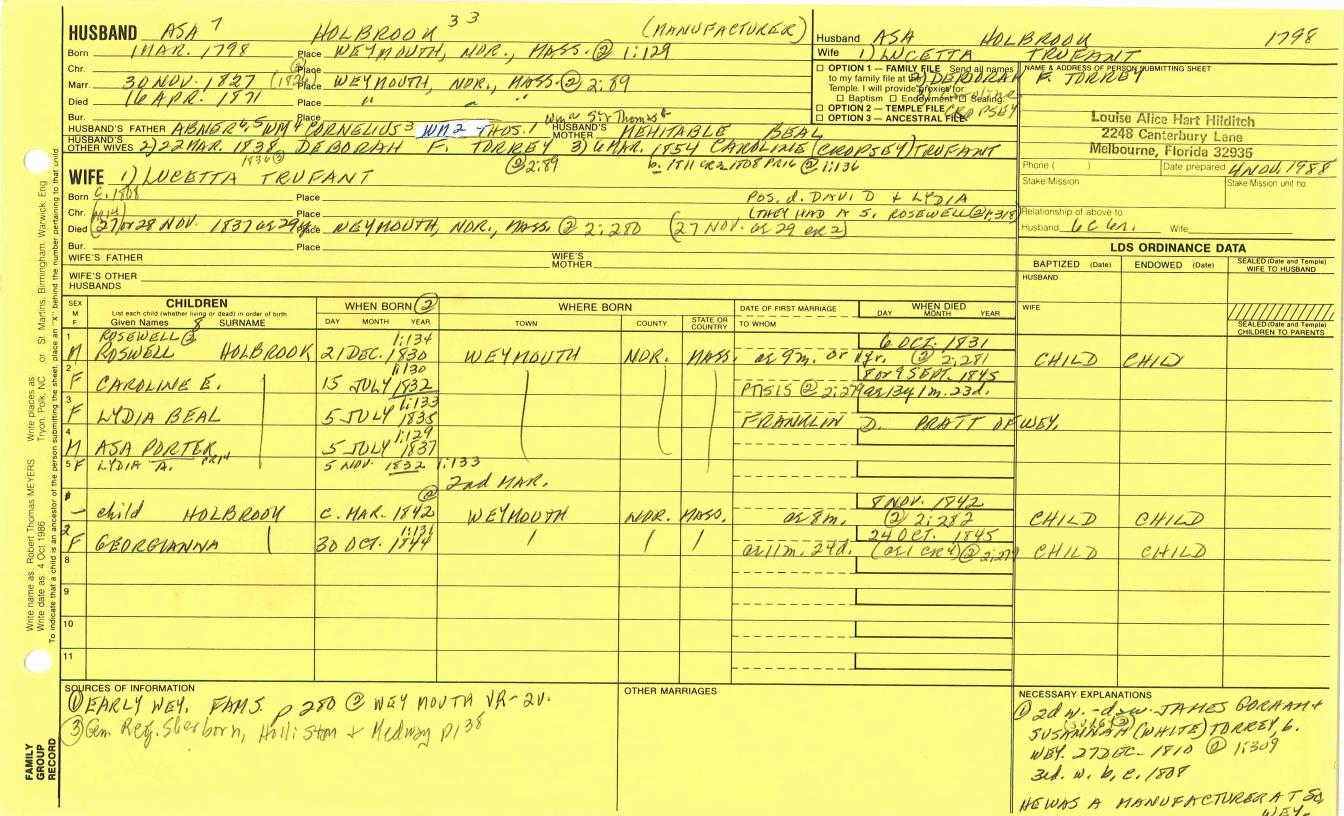 HUSBAND ASA 7 HOLBROOK 33 (MANUFACTURER)
Born 1 MAR. 1798 Place WEYMOUTH, NOR., MASS. ② 1:129
Chr. Place
Marr 30 NOV. 1827 Place WEYMOUTH, NOR., MASS. ② 2:89
Died 16 APR. 1871 Place " " "
Bur. Place
HUSBAND'S FATHER ABNER 6, 5 WM 4 CORNELIUS 3 WM 2 THOS. 1 HUSBAND'S MOTHER MEHITABLE BEAL
HUSBAND'S OTHER WIVES 2) 22 MAR. 1838 DEBORAH F. TORREY 3) 6 MAR. 1854 CAROLINE (CROPSEY) TRUFANT
1836 ② ② 2:89 b. 1811 CR2 1808 PR16 ② 1:136
WIFE 1) LUCETTA TRUFANT
Born c. 1808 Place POS. d. DAVID & LYDIA
Chr. Place (THEY HAD A S. ROSEWELL ② 1:318)
Died (27 or 28 NOV. 1837 Place WEYMOUTH, NOR., MASS. ② 2:280 (27 NOV.
Bur. Place
WIFE'S FATHER WIFE'S MOTHER
WIFE'S OTHER HUSBANDS
Husband ASA HOLBROOK 1798
Wife 1) LUCETTA TRUFANT
2) DEBORAH F. TORREY
CROPSEY
☐ OPTION 1 — FAMILY FILE Send all names
to my family file at the
Temple. I will provide proxies for
☐ Baptism ☐ Endowment ☐ Sealing.
☐ OPTION 2 — TEMPLE FILE
☐ OPTION 3 — ANCESTRAL FILE
NAME & ADDRESS OF PERSON SUBMITTING SHEET
Louise Alice Hart Hilditch
2248 Canterbury Lane
Melbourne, Florida 32935
Phone ( ) Date prepared 4 NOV. 1988
Stake/Mission Stake/Mission unit no.
Relationship of above to
Husband 6C 6r. Wife
LDS ORDINANCE DATA
BAPTIZED (Date) ENDOWED (Date) SEALED (Date and Temple) WIFE TO HUSBAND
HUSBAND
WIFE
SEALED (Date and Temple) CHILDREN TO PARENTS
SEX M F CHILDREN List each child (whether living or dead) in order of birth Given Names 8 SURNAME
WHEN BORN ② DAY MONTH YEAR
WHERE BORN TOWN COUNTY STATE OR COUNTRY
DATE OF FIRST MARRIAGE TO WHOM
WHEN DIED DAY MONTH YEAR
1 ROSEWELL ② 1:134 6 OCT. 1831
M ROSWELL HOLBROOK 21 DEC. 1830 WEYMOUTH NOR. MASS. as 9m. or 1yr. ② 2:281 CHILD CHILD
2 1:130 8 or 9 SEPT. 1845
F CAROLINE E. 15 JULY 1832 PTISIS ② 2:279 as 13y 1m. 23d.
3 1:133
F LYDIA BEAL 5 JULY 1835 FRANKLIN D. PRATT OF WEY.
4 1:129
M ASA PORTER 5 JULY 1837
5 F LYDIA A. PR14 5 NOV. 1832 1:133
2nd MAR.
② 8 NOV. 1842
1 – child HOLBROOK c. MAR. 1842 WEYMOUTH NOR. MASS. as 8m. ② 2:282 CHILD CHILD
2 1:131 24 OCT. 1845
F GEORGIANNA 30 OCT. 1844 as 11m. 24d. (as 1 CR4) ② 2:279 CHILD CHILD
8
9
10
11
SOURCES OF INFORMATION
① EARLY WEY. FAMS. p 280 ② WEYMOUTH VR-2V.
③ Gen. Reg. Sherborn, Holliston & Medway p138
OTHER MARRIAGES
NECESSARY EXPLANATIONS
① 2d w. - JAMES GORHAM &
SUSANNAH (WHITE) TORREY, b.
WEY. 27 DEC. 1810 ② 1:309
3rd. w. b. c. 1808
HE WAS A MANUFACTURER AT SO.
WEY.
FAMILY GROUP RECORD
Write name as Robert Thomas MEYERS Write places as Tryon, Polk, NC or St. Martins, Birmingham, Warwick, Eng
Write date as 4 Oct 1986
To indicate that a child is an ancestor of the person submitting the sheet, place an "X" behind the number pertaining to that child.